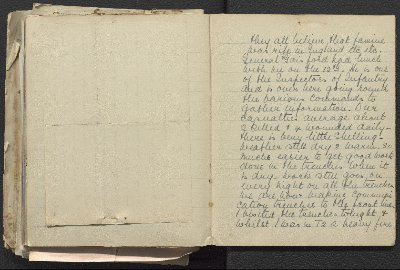 they all believe that famine
was rife in England etc etc.
General Gais ford had lunch
with us on the 12th. He is one
of the Inspectors of Infantry
and is over here going round
the various commands to
gather information. Our
casualties average about
2 killed & 4 wounded daily.
There is very little shelling.
Weather still dry & warm, so
much easier to get good work
done in the trenches when it
is dry. Work still goes on
every night on all the trenches
we are now making communi-
cation trenches to the front line.
I visited the trenches tonight &
whilst I was in T2 a heavy fire